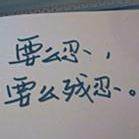 要么忍、，
要么残忍、。